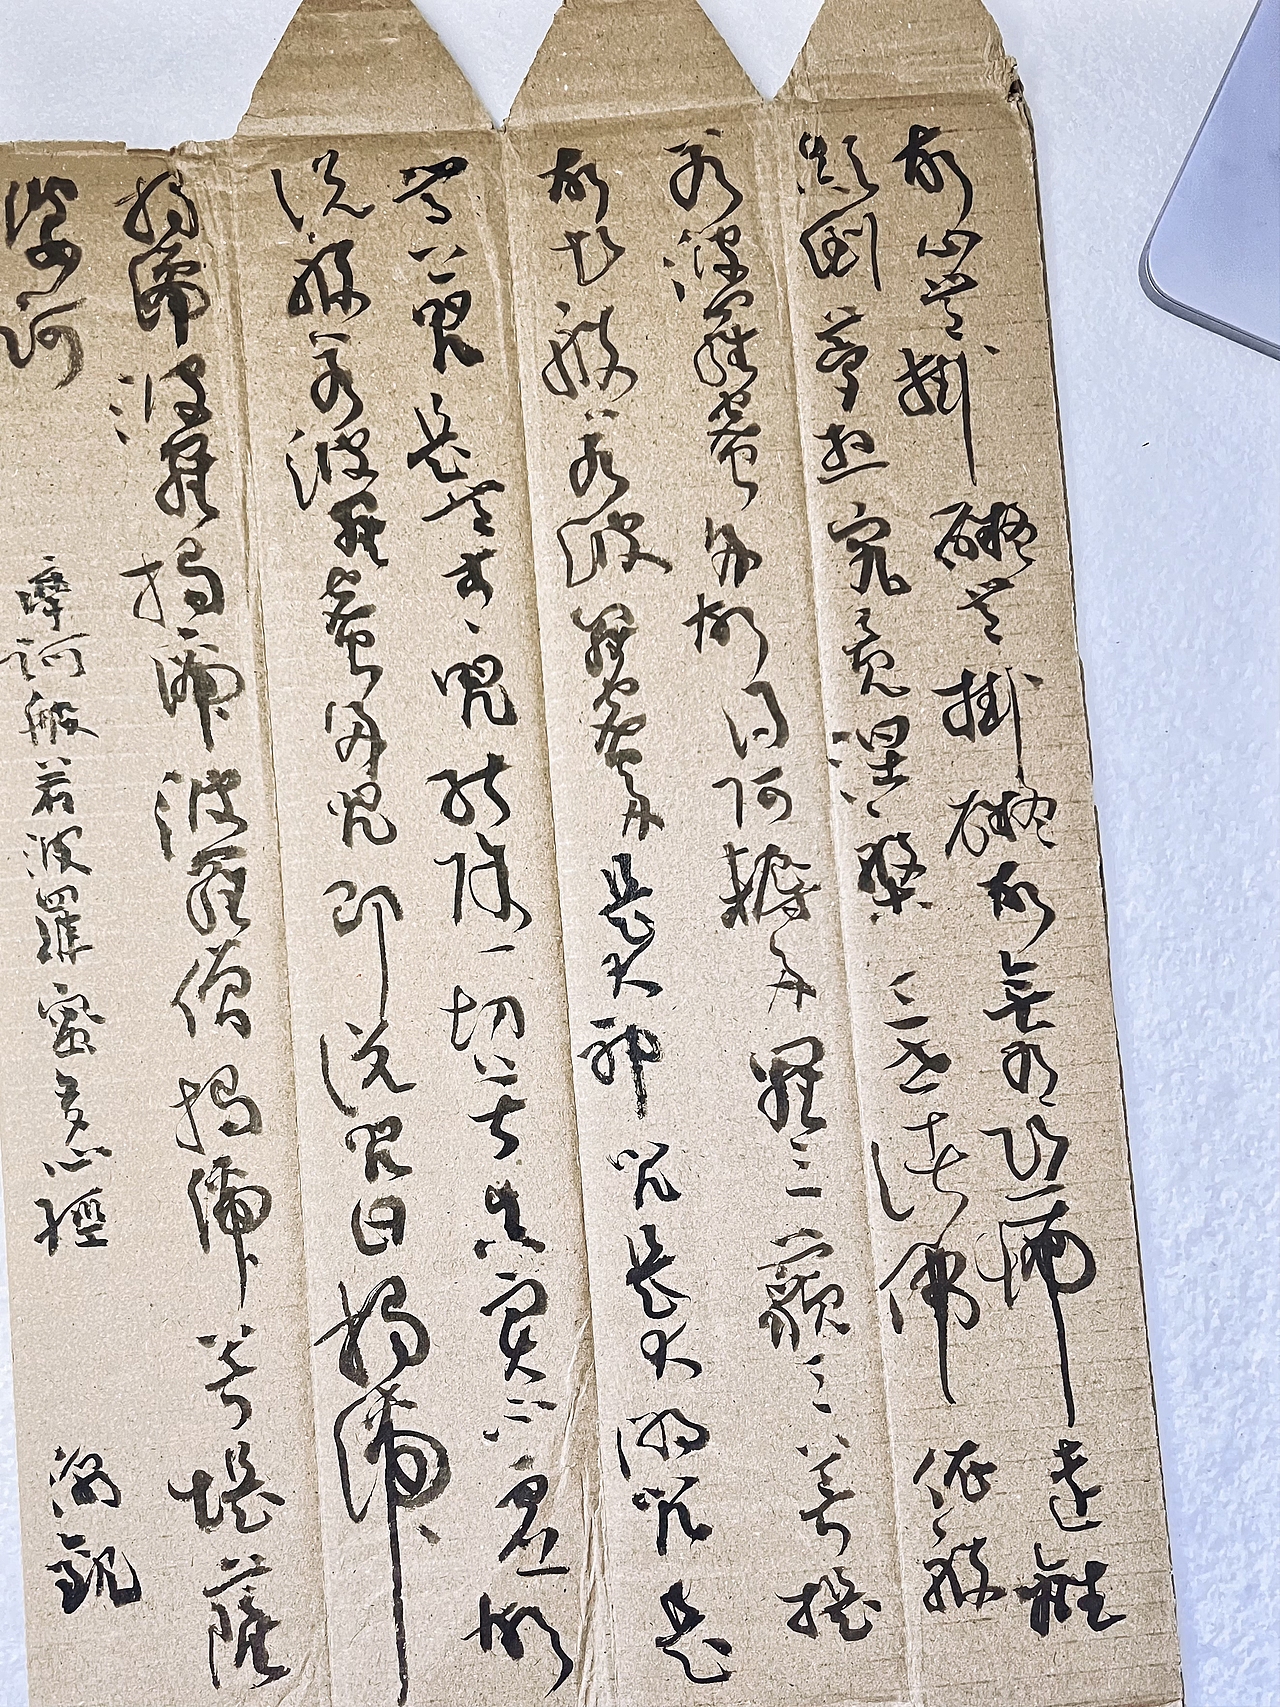 故心無掛礙無掛礙故無有恐怖遠離
顛倒夢想究竟涅槃三世諸佛依般
若波羅蜜多故得阿耨多羅三藐三菩提
故知般若波羅蜜多是大神咒是大明咒是
無上咒是無等等咒能除一切苦真實不虛故
說般若波羅蜜多咒即說咒曰揭諦
揭諦波羅揭諦波羅僧揭諦菩提薩
婆訶 摩訶般若波羅蜜多心經